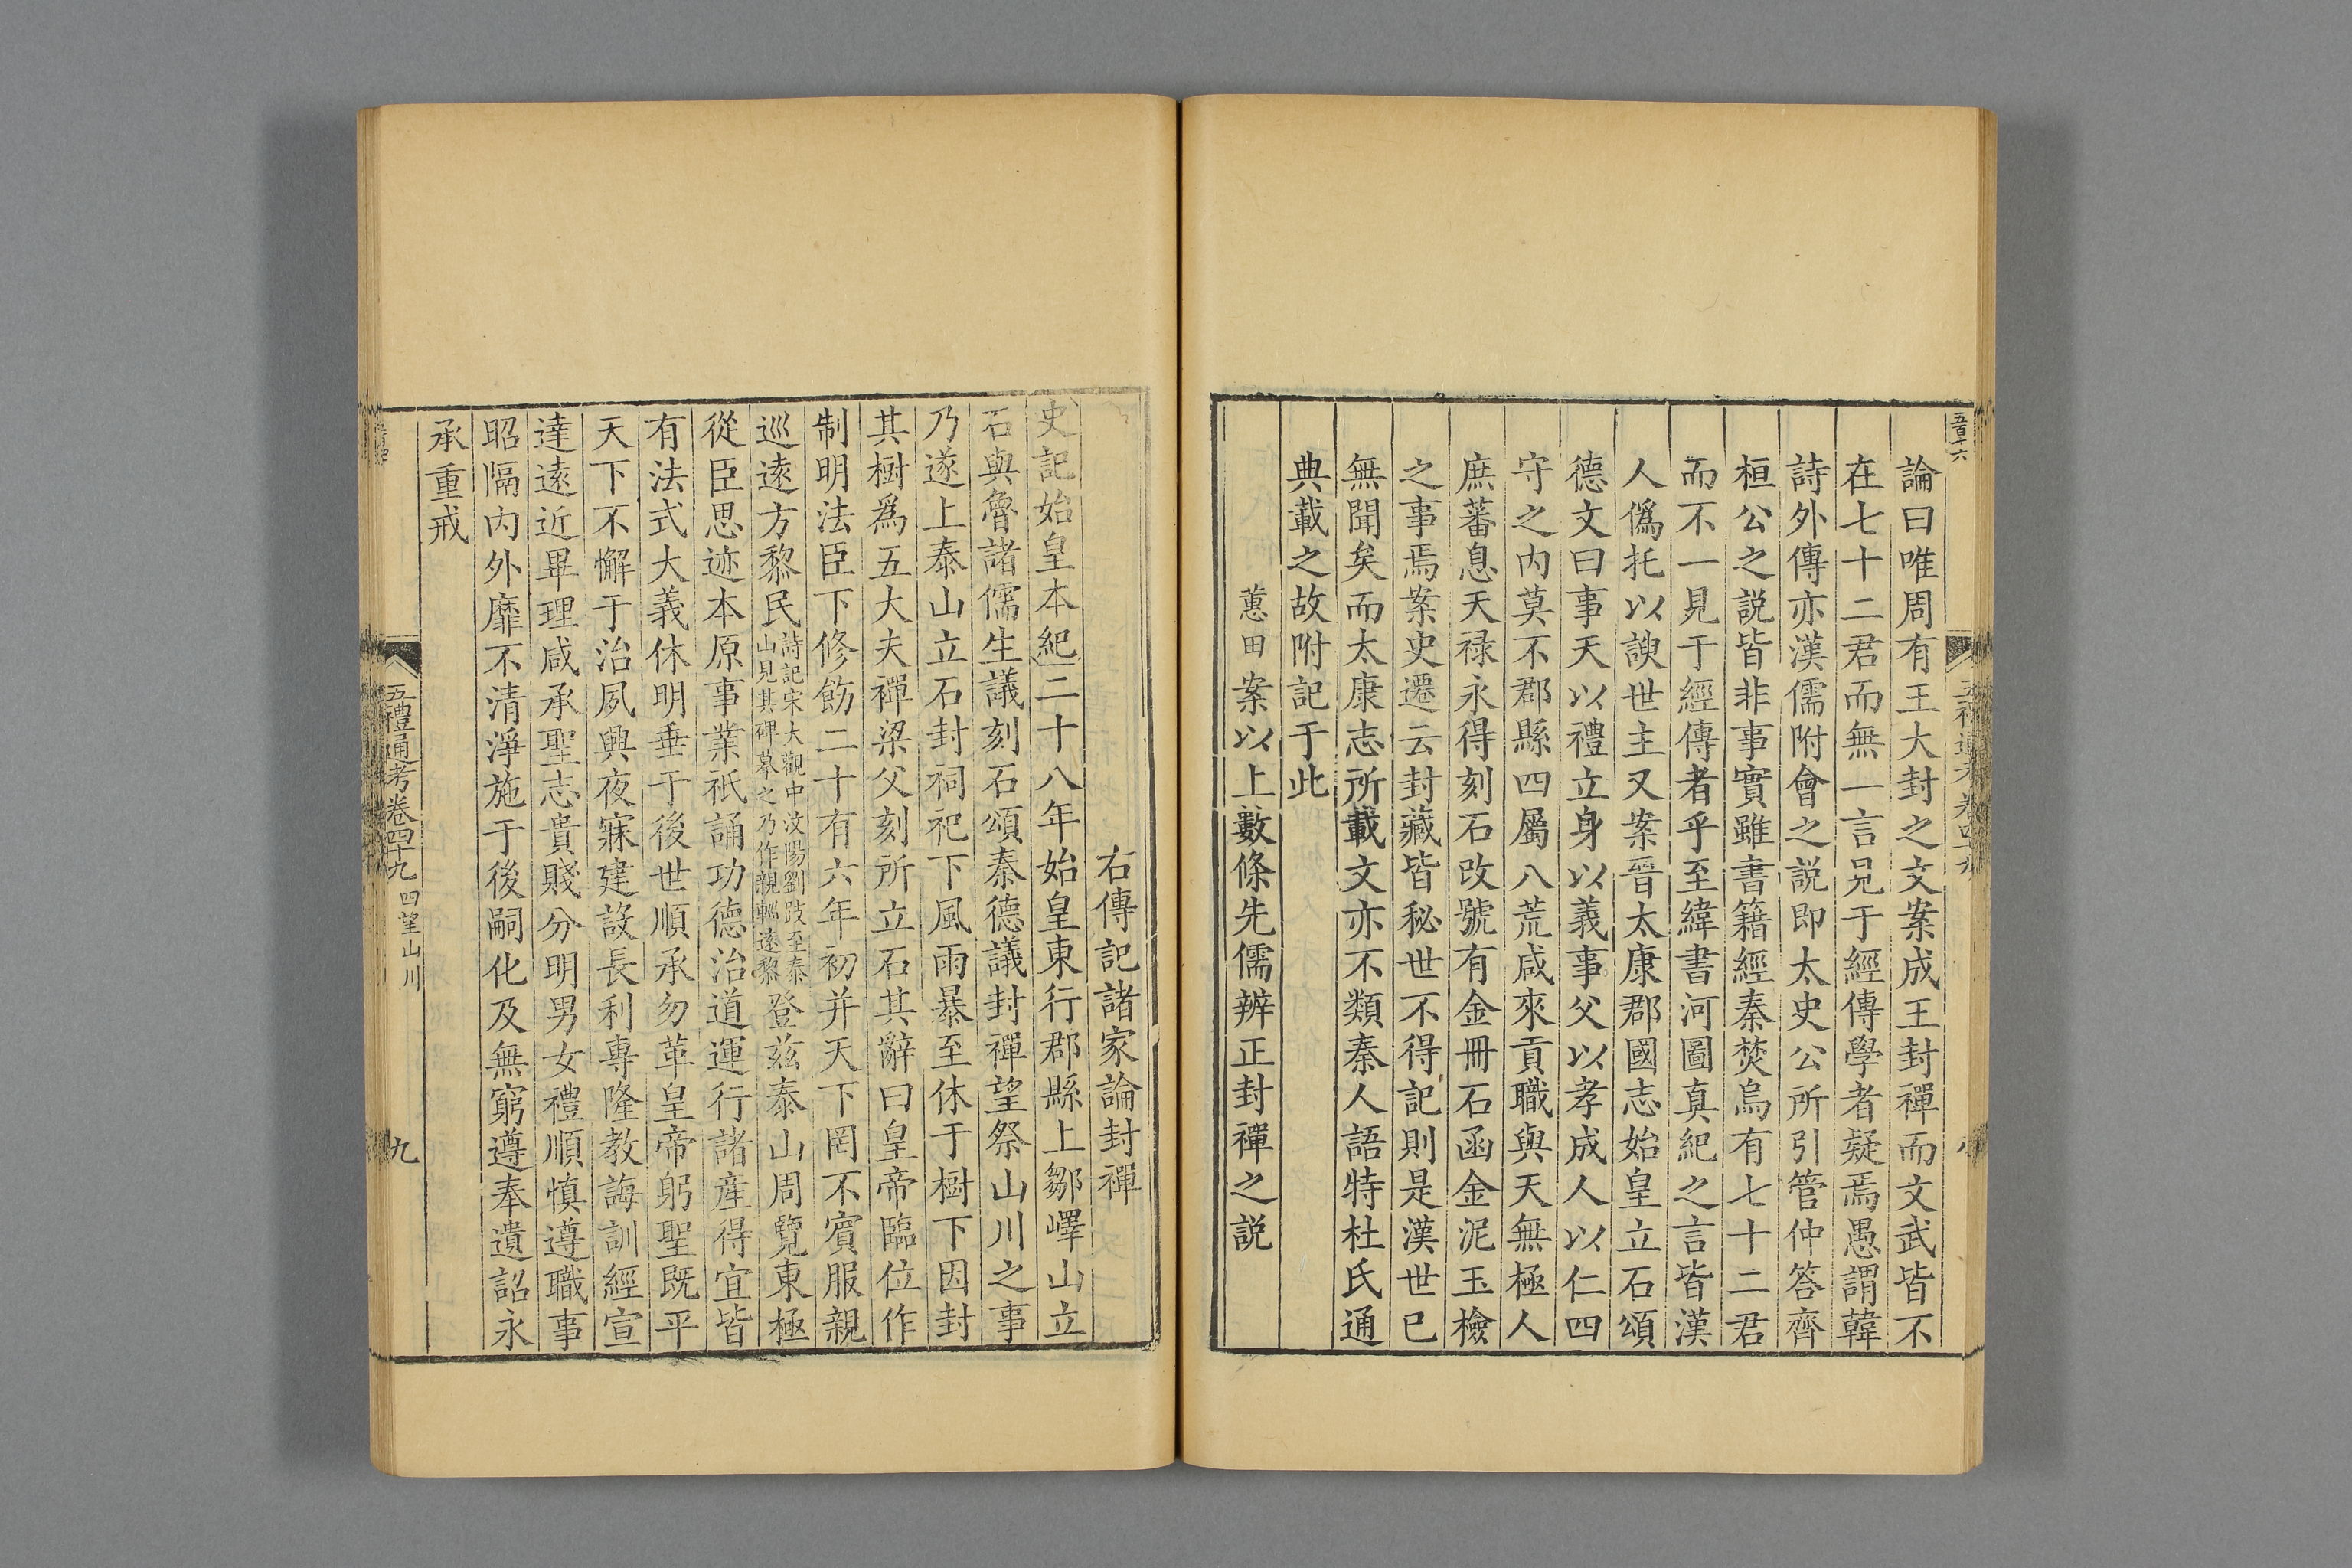 五百十六
論曰唯周有王大封之文案成王封禪而文武皆不
在七十二君而無一言見于經傳學者疑焉愚謂韓
詩外傳亦漢儒附會之説即太史公所引管仲答齊
桓公之説皆非事實雖書籍經秦焚烏有七十二君
而不一見于經傳者乎至緯書河圖真紀之言皆漢
人僞托以諛世主又案晉太康郡國志始皇立石頌
德文曰事天以禮立身以義事父以孝成人以仁四
守之内莫不郡縣四屬八荒咸來貢職與天無極人
庶蕃息天禄永得刻石改號有金冊石函金泥玉檢
之事焉案史遷云封藏皆秘世不得記則是漢世已
無聞矣而太康志所載文亦不類秦人語特杜氏通
典載之故附記于此
蕙田案以上數條先儒辨正封禪之説
右傳記諸家論封禪
史記始皇本紀二十八年始皇東行郡縣上鄒嶧山立
石與魯諸儒生議刻石頌秦德議封禪望祭山川之事
乃遂上泰山立石封祠祀下風雨暴至休于樹下因封
其樹爲五大夫禪梁父刻所立石其辭曰皇帝臨位作
制明法臣下修飭二十有六年初并天下罔不賓服親
巡逺方黎民詩記宋大觀中汶陽劉跂至泰山見其碑摹之乃作親輶逺黎登兹泰山周覽東極
從臣思迹本原事業祇誦功德治道運行諸産得宜皆
有法式大義休明垂于後世順承勿革皇帝躬聖既平
天下不懈于治夙興夜寐建設長利專隆教誨訓經宣
達逺近畢理咸承聖志貴賤分明男女禮順慎遵職事
昭隔内外靡不清淨施于後嗣化及無窮遵奉遺詔永
承重戒
五禮通考卷四十九 四望山川
九